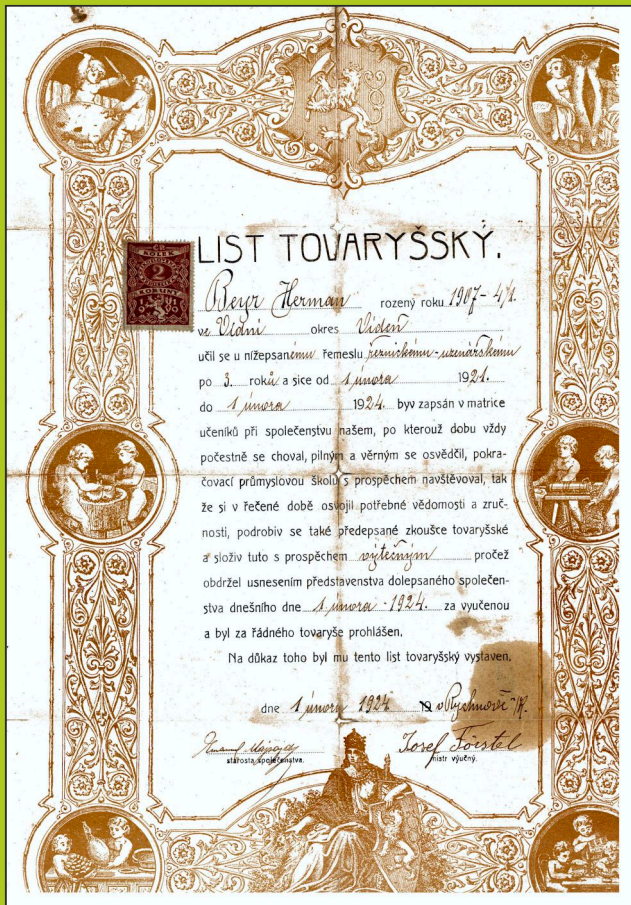 LIST TOVARYŠSKÝ.
KOLEK
2
KORUNY
Beyr Herman rozený roku 1907 - 4/1.
ve Vídni okres Videň
učil se u nížepsanému řemeslu řeznickému-uzenářskému
po 3. roků a sice od 1 února 1921.
do 1 února 1924. byv zapsán v matrice
učeníků při společenstvu našem, po kterouž dobu vždy
počestně se choval, pilným a věrným se osvědčil, pokra-
čovací průmyslovou školu s prospěchem navštěvoval, tak
že si v řečené době osvojil potřebné vědomosti a zruč-
nosti, podrobiv se také předepsané zkoušce tovaryšské
a složiv tuto s prospěchem výtečným pročež
obdržel usnesením představenstva dolepsaného společen-
stva dnešního dne 1 února - 1924. za vyučenou
a byl za řádného tovaryše prohlášen.
Na důkaz toho byl mu tento list tovaryšský vystaven.
dne 1 února 1924 v Rychnově
Josef Förstel
starosta společenstva. mistr výučný.